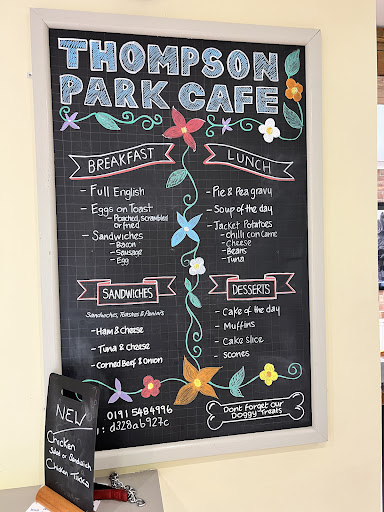 THOMPSON
PARK CAFE
BREAKFAST
- Full English
- Eggs on Toast
- Poached, scrambled
or fried
- Sandwiches
- Bacon
- Sausage
- Egg
LUNCH
- Pie & Pea gravy
- Soup of the day
- Jacket Potatoes
- Chilli con Carne
- Cheese
- Beans
- Tuna
SANDWICHES
Sandwiches, Toasties & Paninis
- Ham & Cheese
- Tuna & Cheese
- Corned Beef & Onion
DESSERTS
- Cake of the day
- Muffins
- Cake slice
- Scones
0191 5484996
: d328ab927c
Dont forget our
Doggy Treats
NEW
Chicken
Salad or Sandwich
Chicken